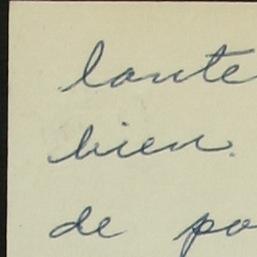 lante
bien.
de po